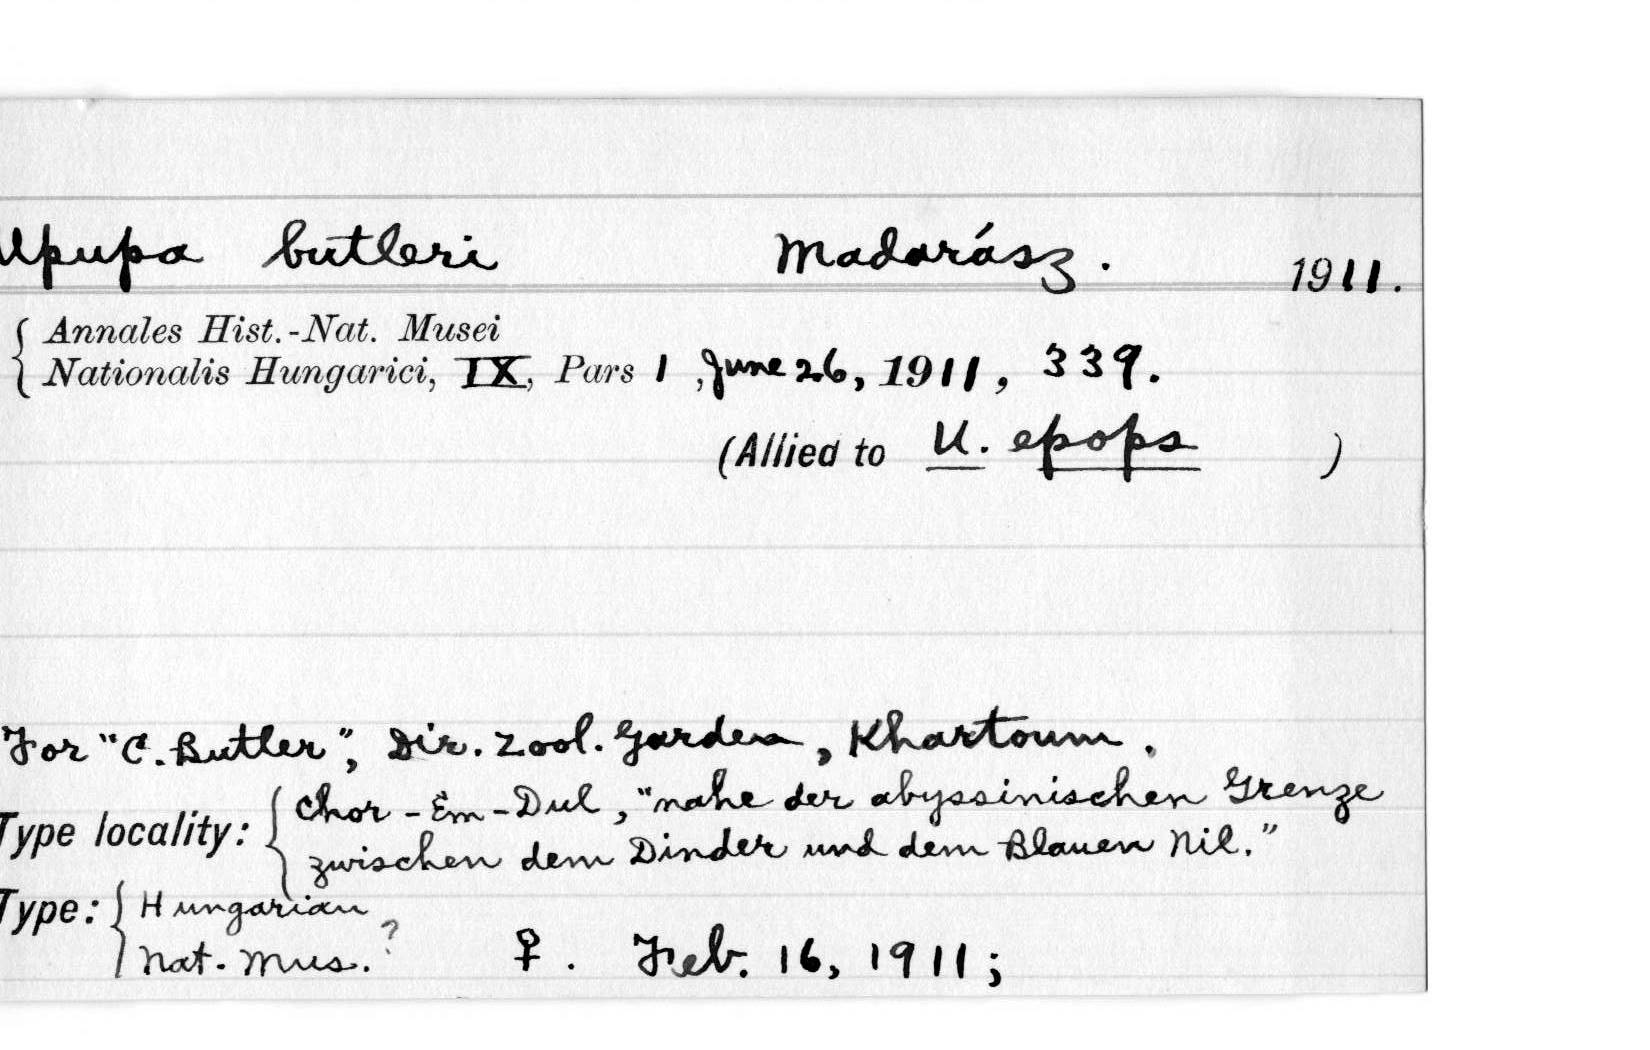 Upupa butleri Madarász. 1911.
Annales Hist.-Nat. Musei
Nationalis Hungarici, IX, Pars 1, June 26, 1911, 339.
(Allied to U. epops )
For "C. Butler", Dir. Zool. Garden, Khartoum.
Type locality: Chor-Em-Dul, "nahe der abyssinischen Grenze
zwischen dem Dinder und dem Blauen Nil."
Type: Hungarian
Nat. Mus. ? ♀. Feb. 16, 1911;